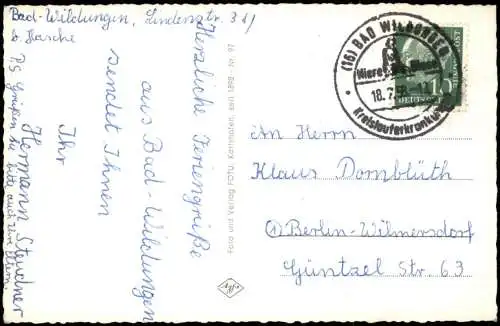 Bad-Wildungen, Lindenstr. 31/
b. Hasche
Herzliche Feriengrüße
aus Bad-Wildungen
sendet Ihnen
Ihr
Hermann Steudner
P.S. Grüßen Sie bitte auch Ihre Eltern.
Foto und Verlag FOTO
Agfa
(16) BAD WILDUNGEN
Niere
18.7.
Kreislauferkrankungen
An Herrn
Klaus Domblüth
① Berlin-Wilmersdorf
Güntzel Str. 63